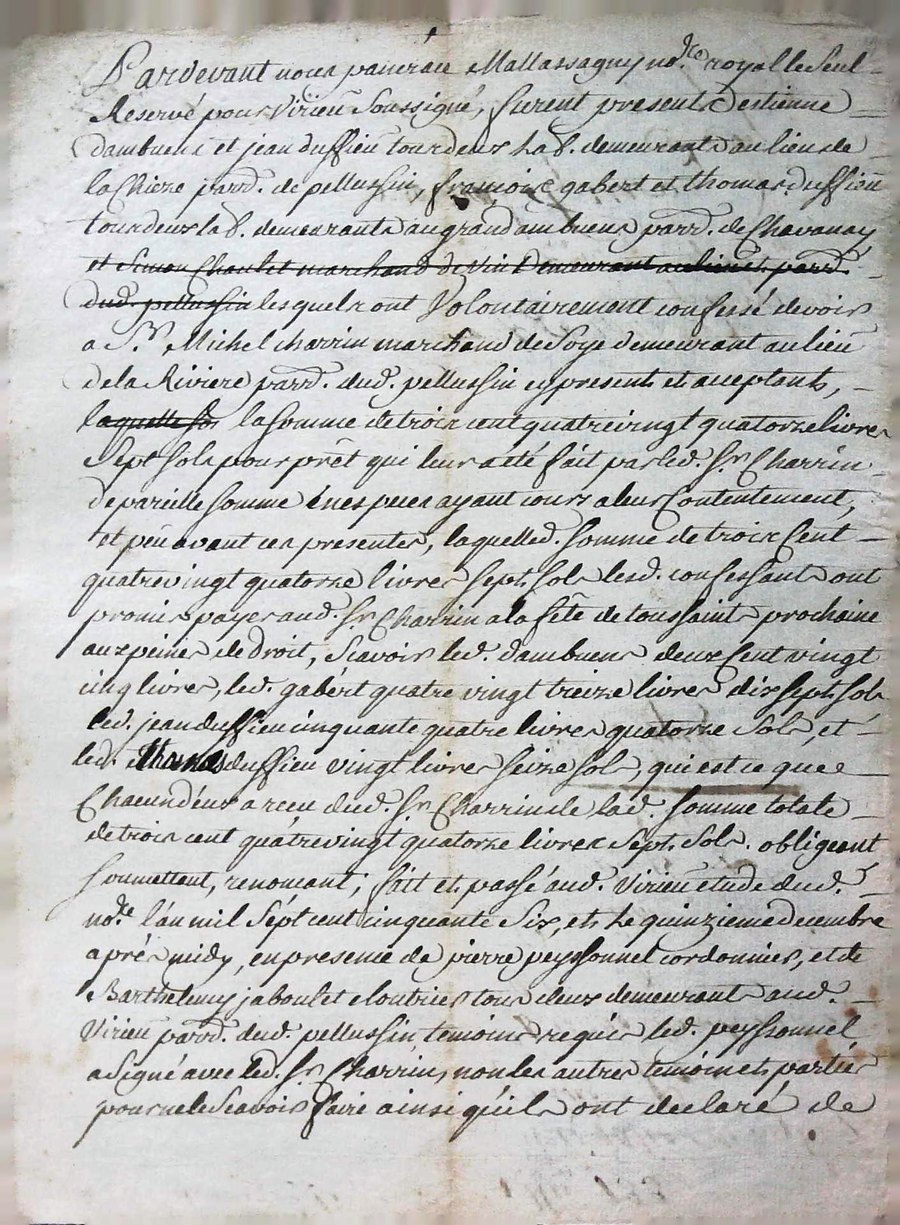 Pardevant nous pancrace Mallassagny no.re royal le Seul
Reservé pour Virieu Soussigné, furent presents estienne
dambuens et jean duffieu tous deux lab. demeurants au lieu de
la Chieze parr. de pellussin, françois gabert et thomas duffieu
tous deux lab. demeurants au grand ambuens parr. de Chavanay
et Simon Chaulet marchand de vin Demeurant au lieu et parr.
dud. pellussin lesquels ont Volontairement confessé devoir
a S.r Michel charrin marchand de Soye demeurant au lieu
de la Riviere parr. dud. pellussin cy present et acceptant,
laquelle so la Somme de trois cent quatre vingt quatorze livres
Sept Sols pour prêt qui leur a eté fait par led. S.r Charrin
de pareille Somme en especes ayant cours a leur Contentement,
et peu avant ces presentes, laquelle d. Somme de trois Cent
quatre vingt quatorze livres Sept Sols lesd. confessants ont
promis payer aud. S.r Charrin a la fête de toussaint prochaine
aux peines de droit, Scavoir led. dambuens deux Cent vingt
cinq livres, led. gabert quatre vingt treize livres dix Sept Sols
led. jean duffieu cinquante quatre livres quatorze Sols, et
led. thomas duffieu vingt livres Seize Sols, qui est ce que
Chacun d'eux a reçeu dud. S.r Charrin de lad. Somme totale
de trois cent quatre vingt quatorze livres Sept Sols. obligeant
Soumettant, renonçant, fait et passé aud. Virieu etude dud.
no.re l'an mil Sept cent cinquante Six, et Le quinzieme decembre
aprés midy, en presence de pierre peyssonnel cordonnier, et de
Barthelemy jaboulet cloutrier tous deux demeurants aud.
Virieu parr. dud. pellussin temoins requis led. peyssonnel
a Signé avec led. S.r Charrin, non les autres temoin et parties
pour ne le Scavoir faire ainsi qu'ils ont declaré de